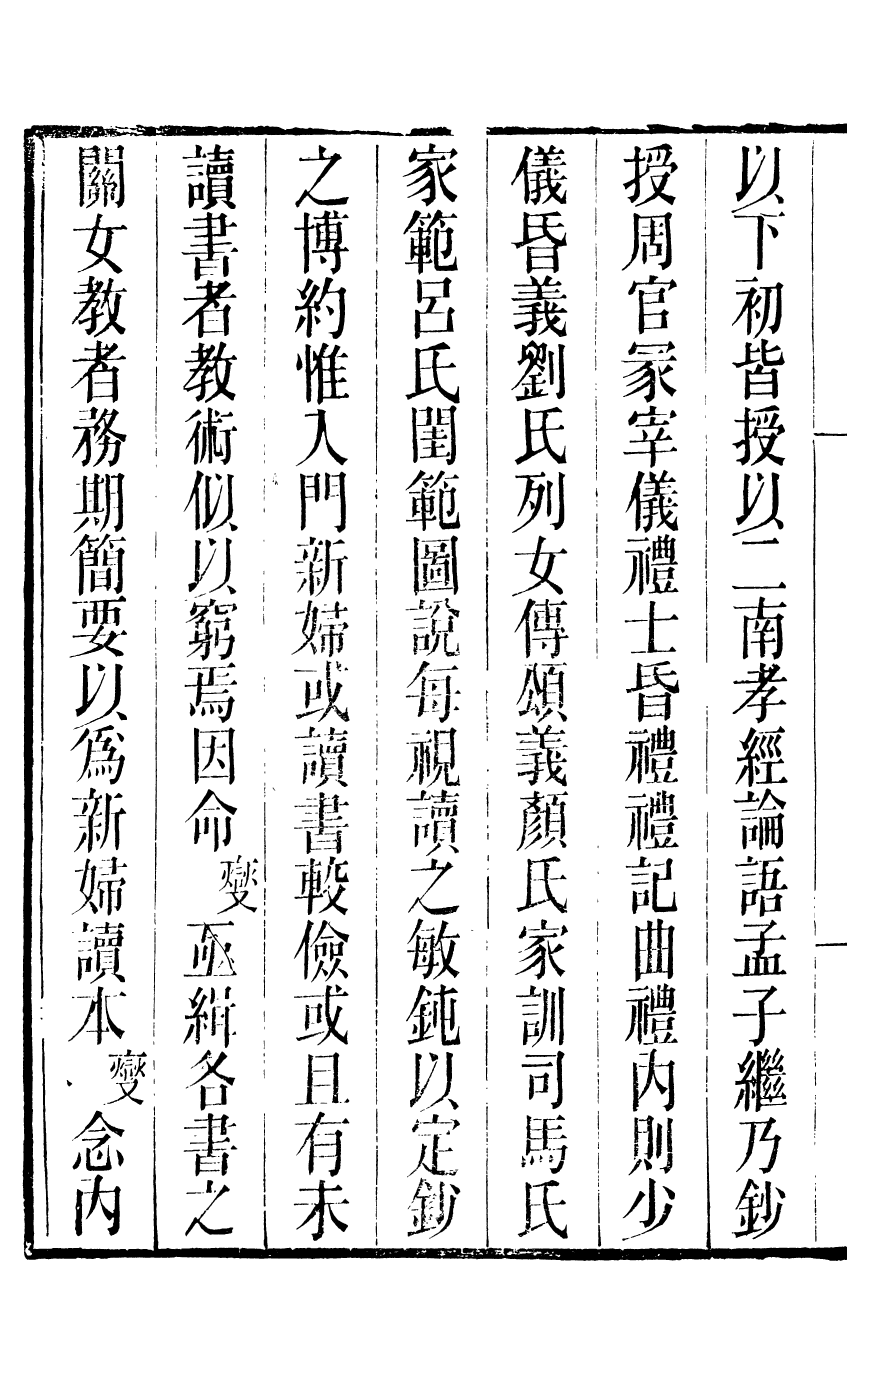 以下初皆授以二南孝經論語孟子繼乃鈔
授周官冢宰儀禮士昏禮禮記曲禮內則少
儀昏義劉氏列女傳頌義顏氏家訓司馬氏
家範呂氏閨範圖說每視讀之敏鈍以定鈔
之博約惟入門新婦或讀書較儉或且有未
讀書者教術似以窮焉因命燮亟緝各書之
關女教者務期簡要以爲新婦讀本燮念內